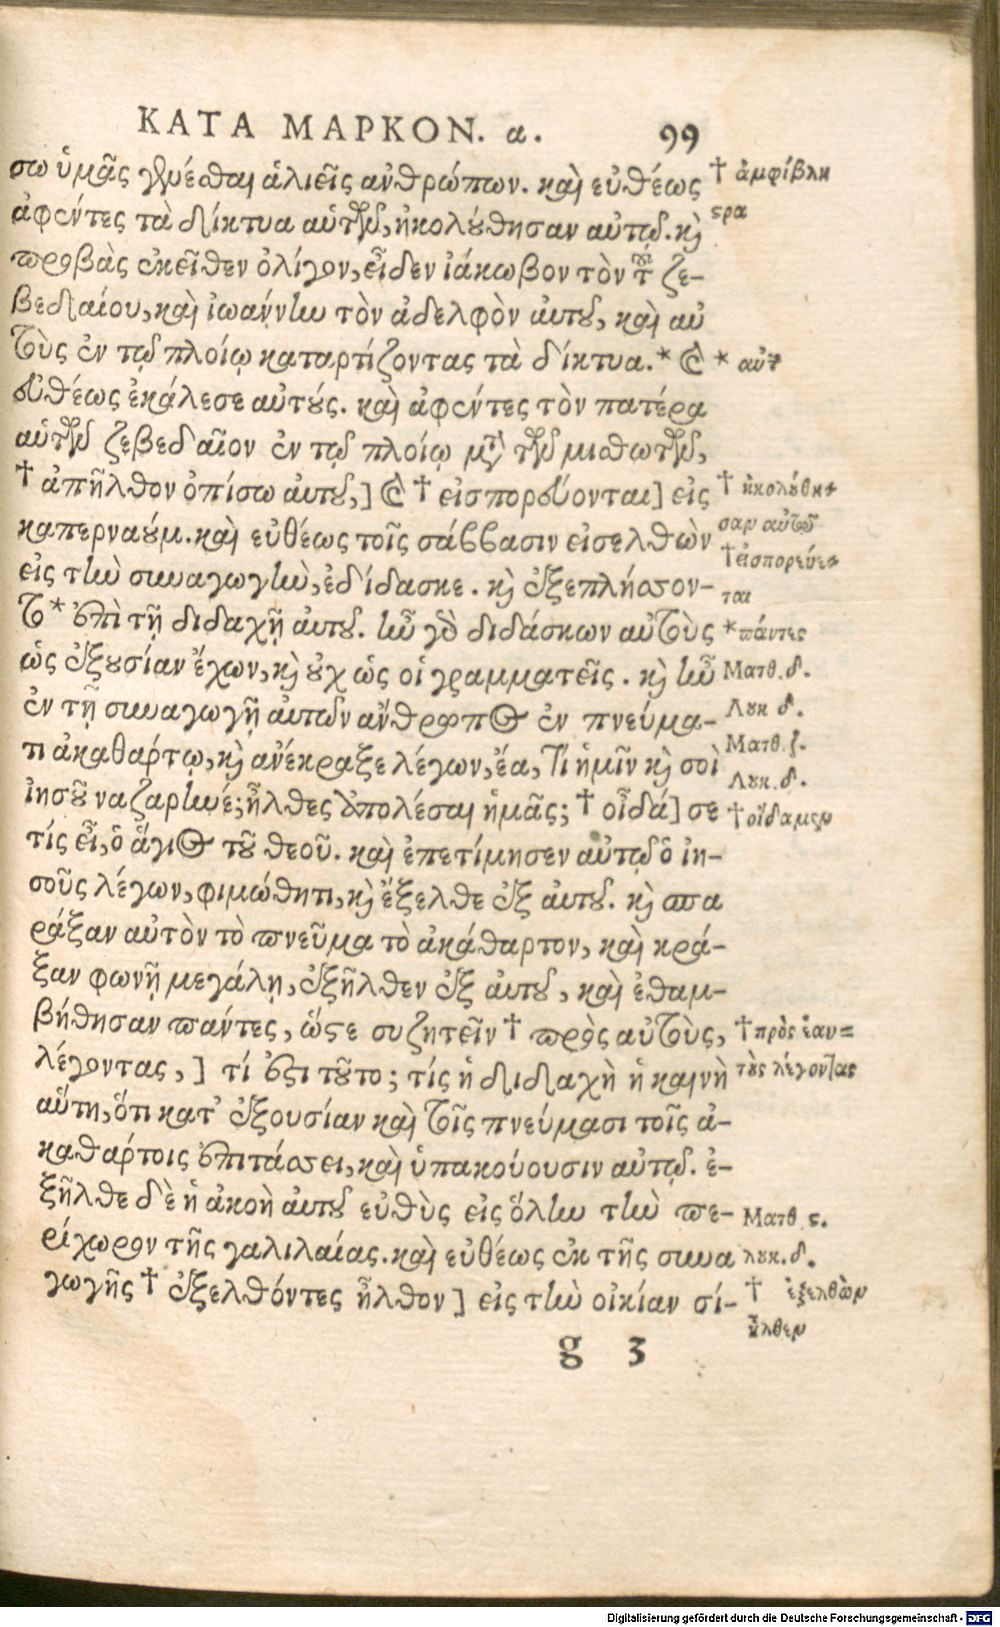 ΚΑΤΑ ΜΑΡΚΟΝ. α. 99
σω ὑμᾶς γενέσθαι ἁλιεῖς ἀνθρώπων. καὶ εὐθέως † ἀμφίβλη
ἀφέντες τὰ δίκτυα αὑτῶν, ἠκολούθησαν αὐτῷ. καὶ στρα
προβὰς ἐκεῖθεν ὀλίγον, εἶδεν ἰάκωβον τὸν τοῦ ζε-
βεδαίου, καὶ ἰωάννην τὸν ἀδελφὸν αὐτοῦ, καὶ αὐ
τοὺς ἐν τῷ πλοίῳ καταρτίζοντας τὰ δίκτυα. * καὶ * αὐτ
εὐθέως ἐκάλεσε αὐτούς. καὶ ἀφέντες τὸν πατέρα
αὑτῶν ζεβεδαῖον ἐν τῷ πλοίῳ μετὰ τῶν μισθωτῶν,
† ἀπῆλθον ὀπίσω αὐτοῦ,] καὶ † εἰσπορεύονται] εἰς † ἠκολούθη-
καπερναούμ. καὶ εὐθέως τοῖς σάββασιν εἰσελθὼν σαν αὐτῷ
εἰς τὴν συναγωγὴν, ἐδίδασκε. καὶ ἐξεπλήσσον- † εἰσπορεύε-
ται
το * ἐπὶ τῇ διδαχῇ αὐτοῦ. ἦν γὰρ διδάσκων αὐτοὺς * πάντες
ὡς ἐξουσίαν ἔχων, καὶ οὐχ ὡς οἱ γραμματεῖς. καὶ ἦν Ματθ. δ.
ἐν τῇ συναγωγῇ αὐτῶν ἄνθρωπος ἐν πνεύμα- Λουκ δ.
τι ἀκαθάρτῳ, καὶ ἀνέκραξε λέγων, ἔα, τί ἡμῖν καὶ σοὶ Ματθ. ζ.
Λουκ. δ.
ἰησοῦ ναζαρηνέ; ἦλθες ἀπολέσαι ἡμᾶς; † οἶδά] σε † οἴδαμεν
τίς εἶ, ὁ ἅγιος τοῦ θεοῦ. καὶ ἐπετίμησεν αὐτῷ ὁ ἰη-
σοῦς λέγων, φιμώθητι, καὶ ἔξελθε ἐξ αὐτοῦ. καὶ σπα
ράξαν αὐτὸν τὸ πνεῦμα τὸ ἀκάθαρτον, καὶ κρά-
ξαν φωνῇ μεγάλῃ, ἐξῆλθεν ἐξ αὐτοῦ, καὶ ἐθαμ-
βήθησαν πάντες, ὥστε συζητεῖν † πρὸς αὐτοὺς, † πρὸς ἑαυ=
λέγοντας,] τί ἐστι τοῦτο; τίς ἡ διδαχὴ ἡ καινὴ τοὺς λέγοντας
αὕτη, ὅτι κατ’ ἐξουσίαν καὶ τοῖς πνεύμασι τοῖς ἀ-
καθάρτοις ἐπιτάσσει, καὶ ὑπακούουσιν αὐτῷ. ἐ-
ξῆλθε δὲ ἡ ἀκοὴ αὐτοῦ εὐθὺς εἰς ὅλην τὴν πε- Ματθ ς.
ρίχωρον τῆς γαλιλαίας. καὶ εὐθέως ἐκ τῆς συνα λουκ. δ.
γωγῆς † ἐξελθόντες ἦλθον] εἰς τὴν οἰκίαν σί- † ἐξελθὼν
ἦλθεν
g 3
Digitalisierung gefördert durch die Deutsche Forschungsgemeinschaft - DFG